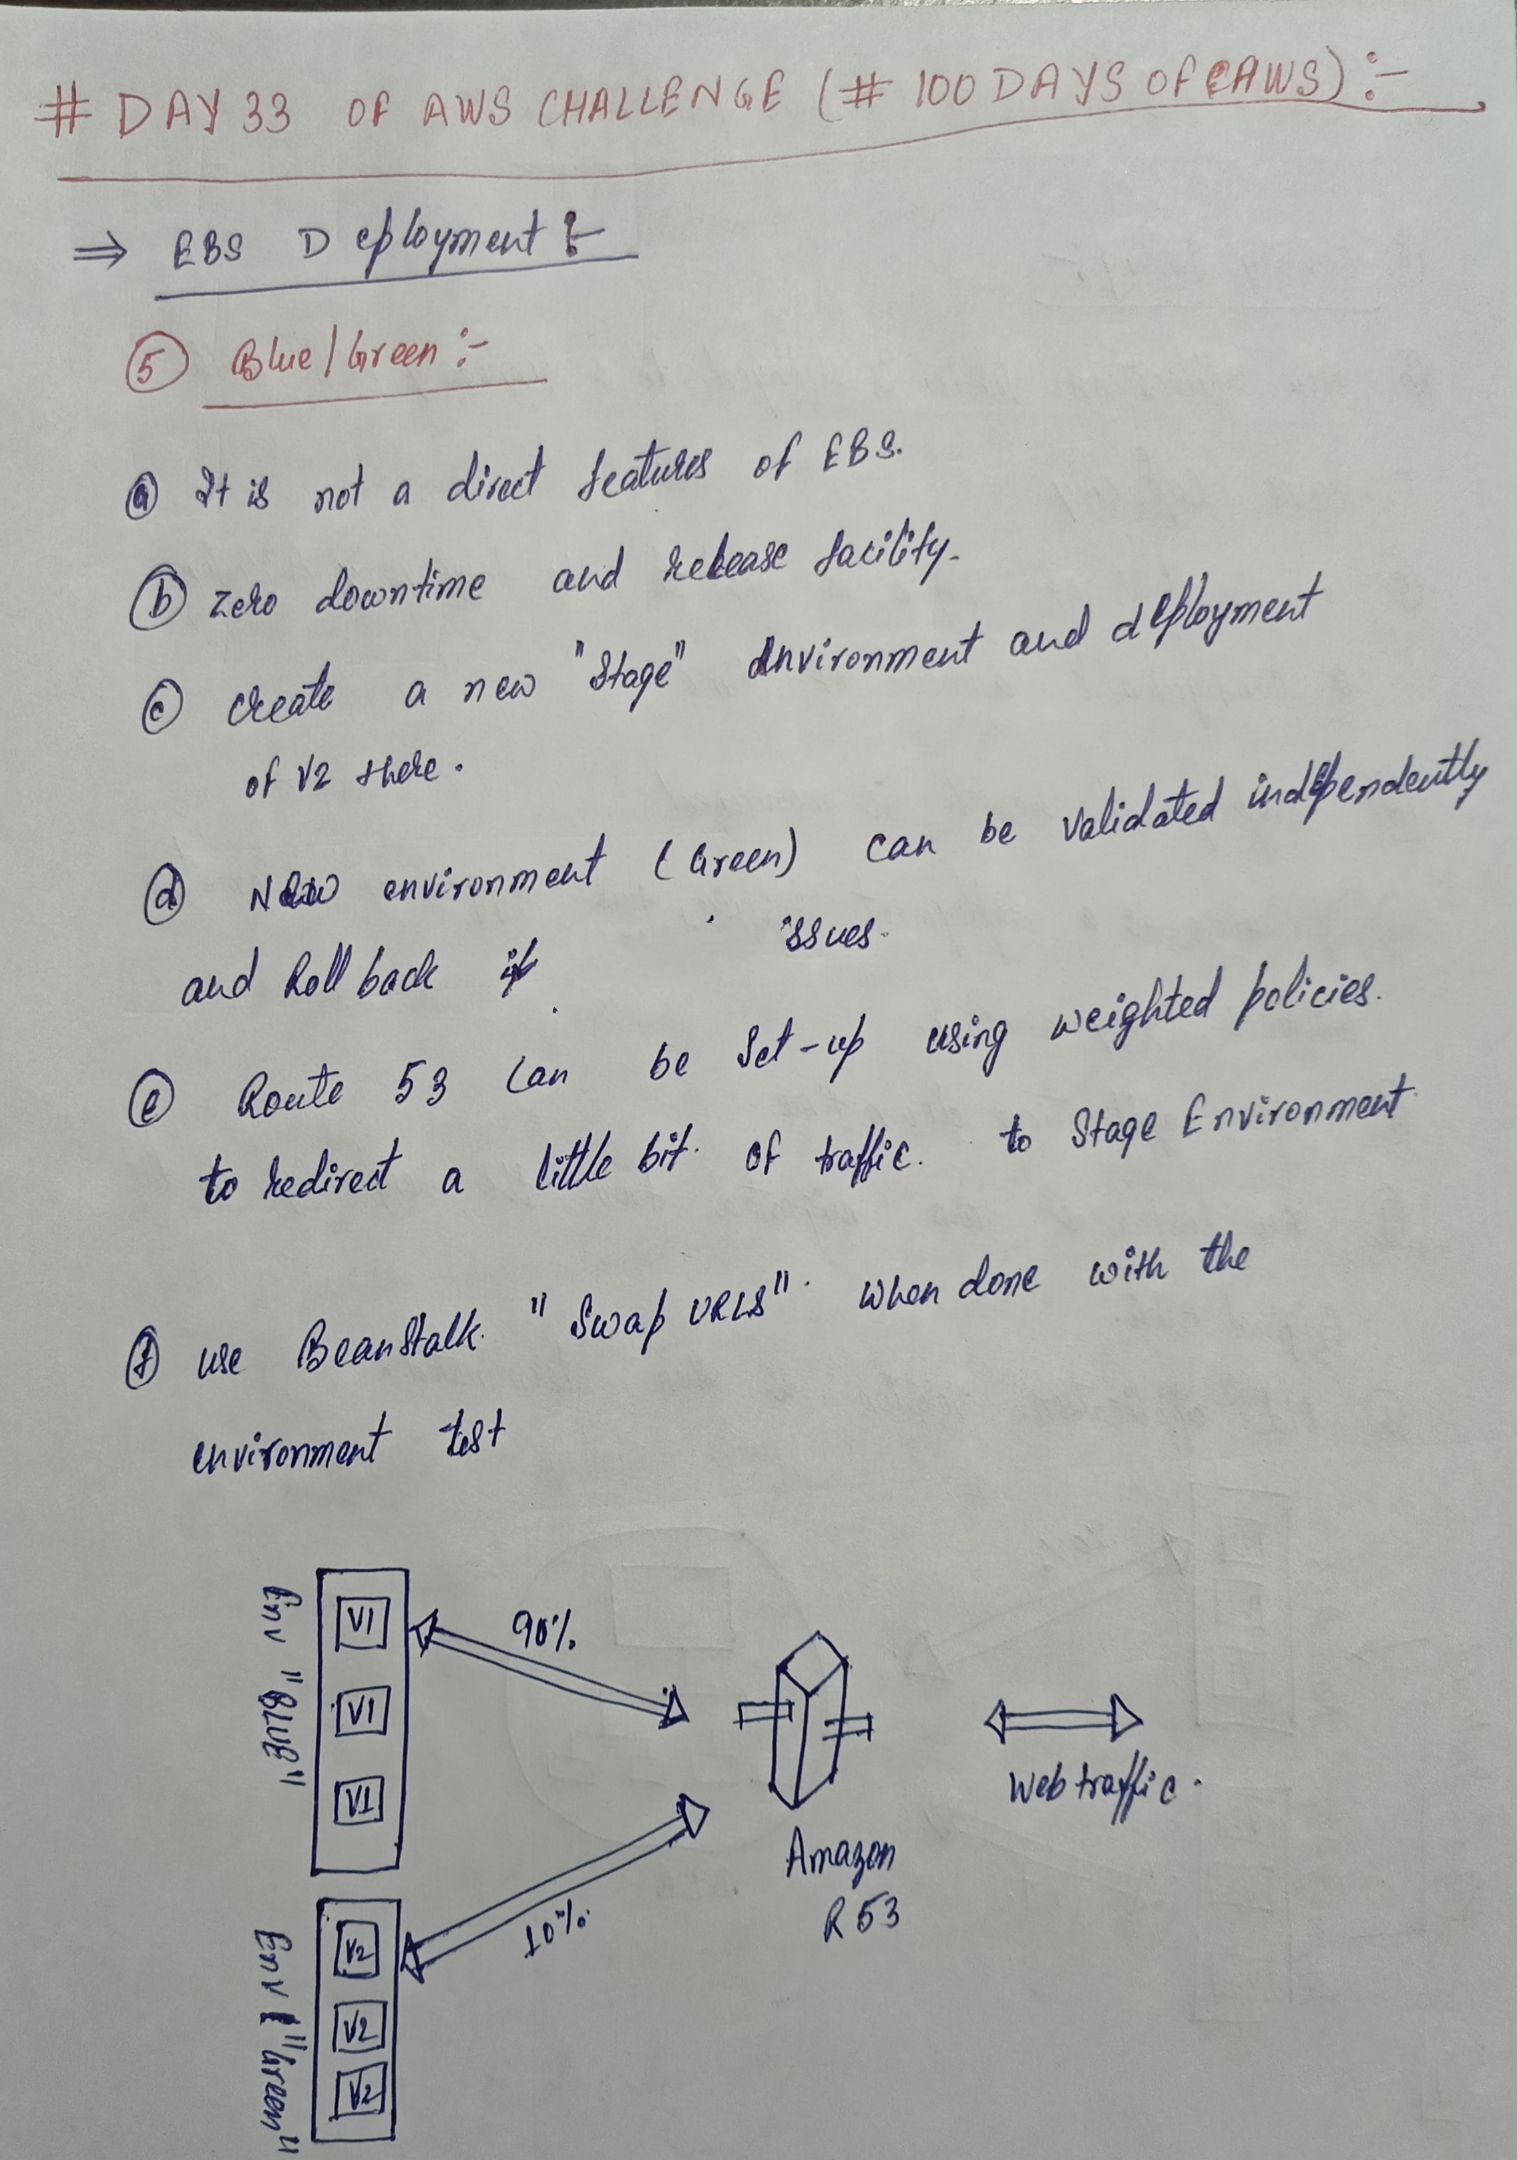 # DAY 33 OF AWS CHALLENGE (# 100 DAYS OF AWS) :-
⇒ EBS Deployment :-
⑤ Blue/Green :-
ⓐ It is not a direct features of EBS.
ⓑ Zero downtime and release facility.
ⓒ create a new "Stage" Environment and deployment
of V2 there.
ⓓ New environment (Green) can be validated independently
and Roll back if issues.
ⓔ Route 53 can be Set-up using weighted policies.
to redirect a little bit. of traffic. to Stage Environment
ⓕ use BeanStalk. "Swap URLS". when done with the
environment test
Env "BLUE"
V1
V1
V1
90%
Web traffic.
Amazon
R 53
10%.
Env "Green"
V2
V2
V2